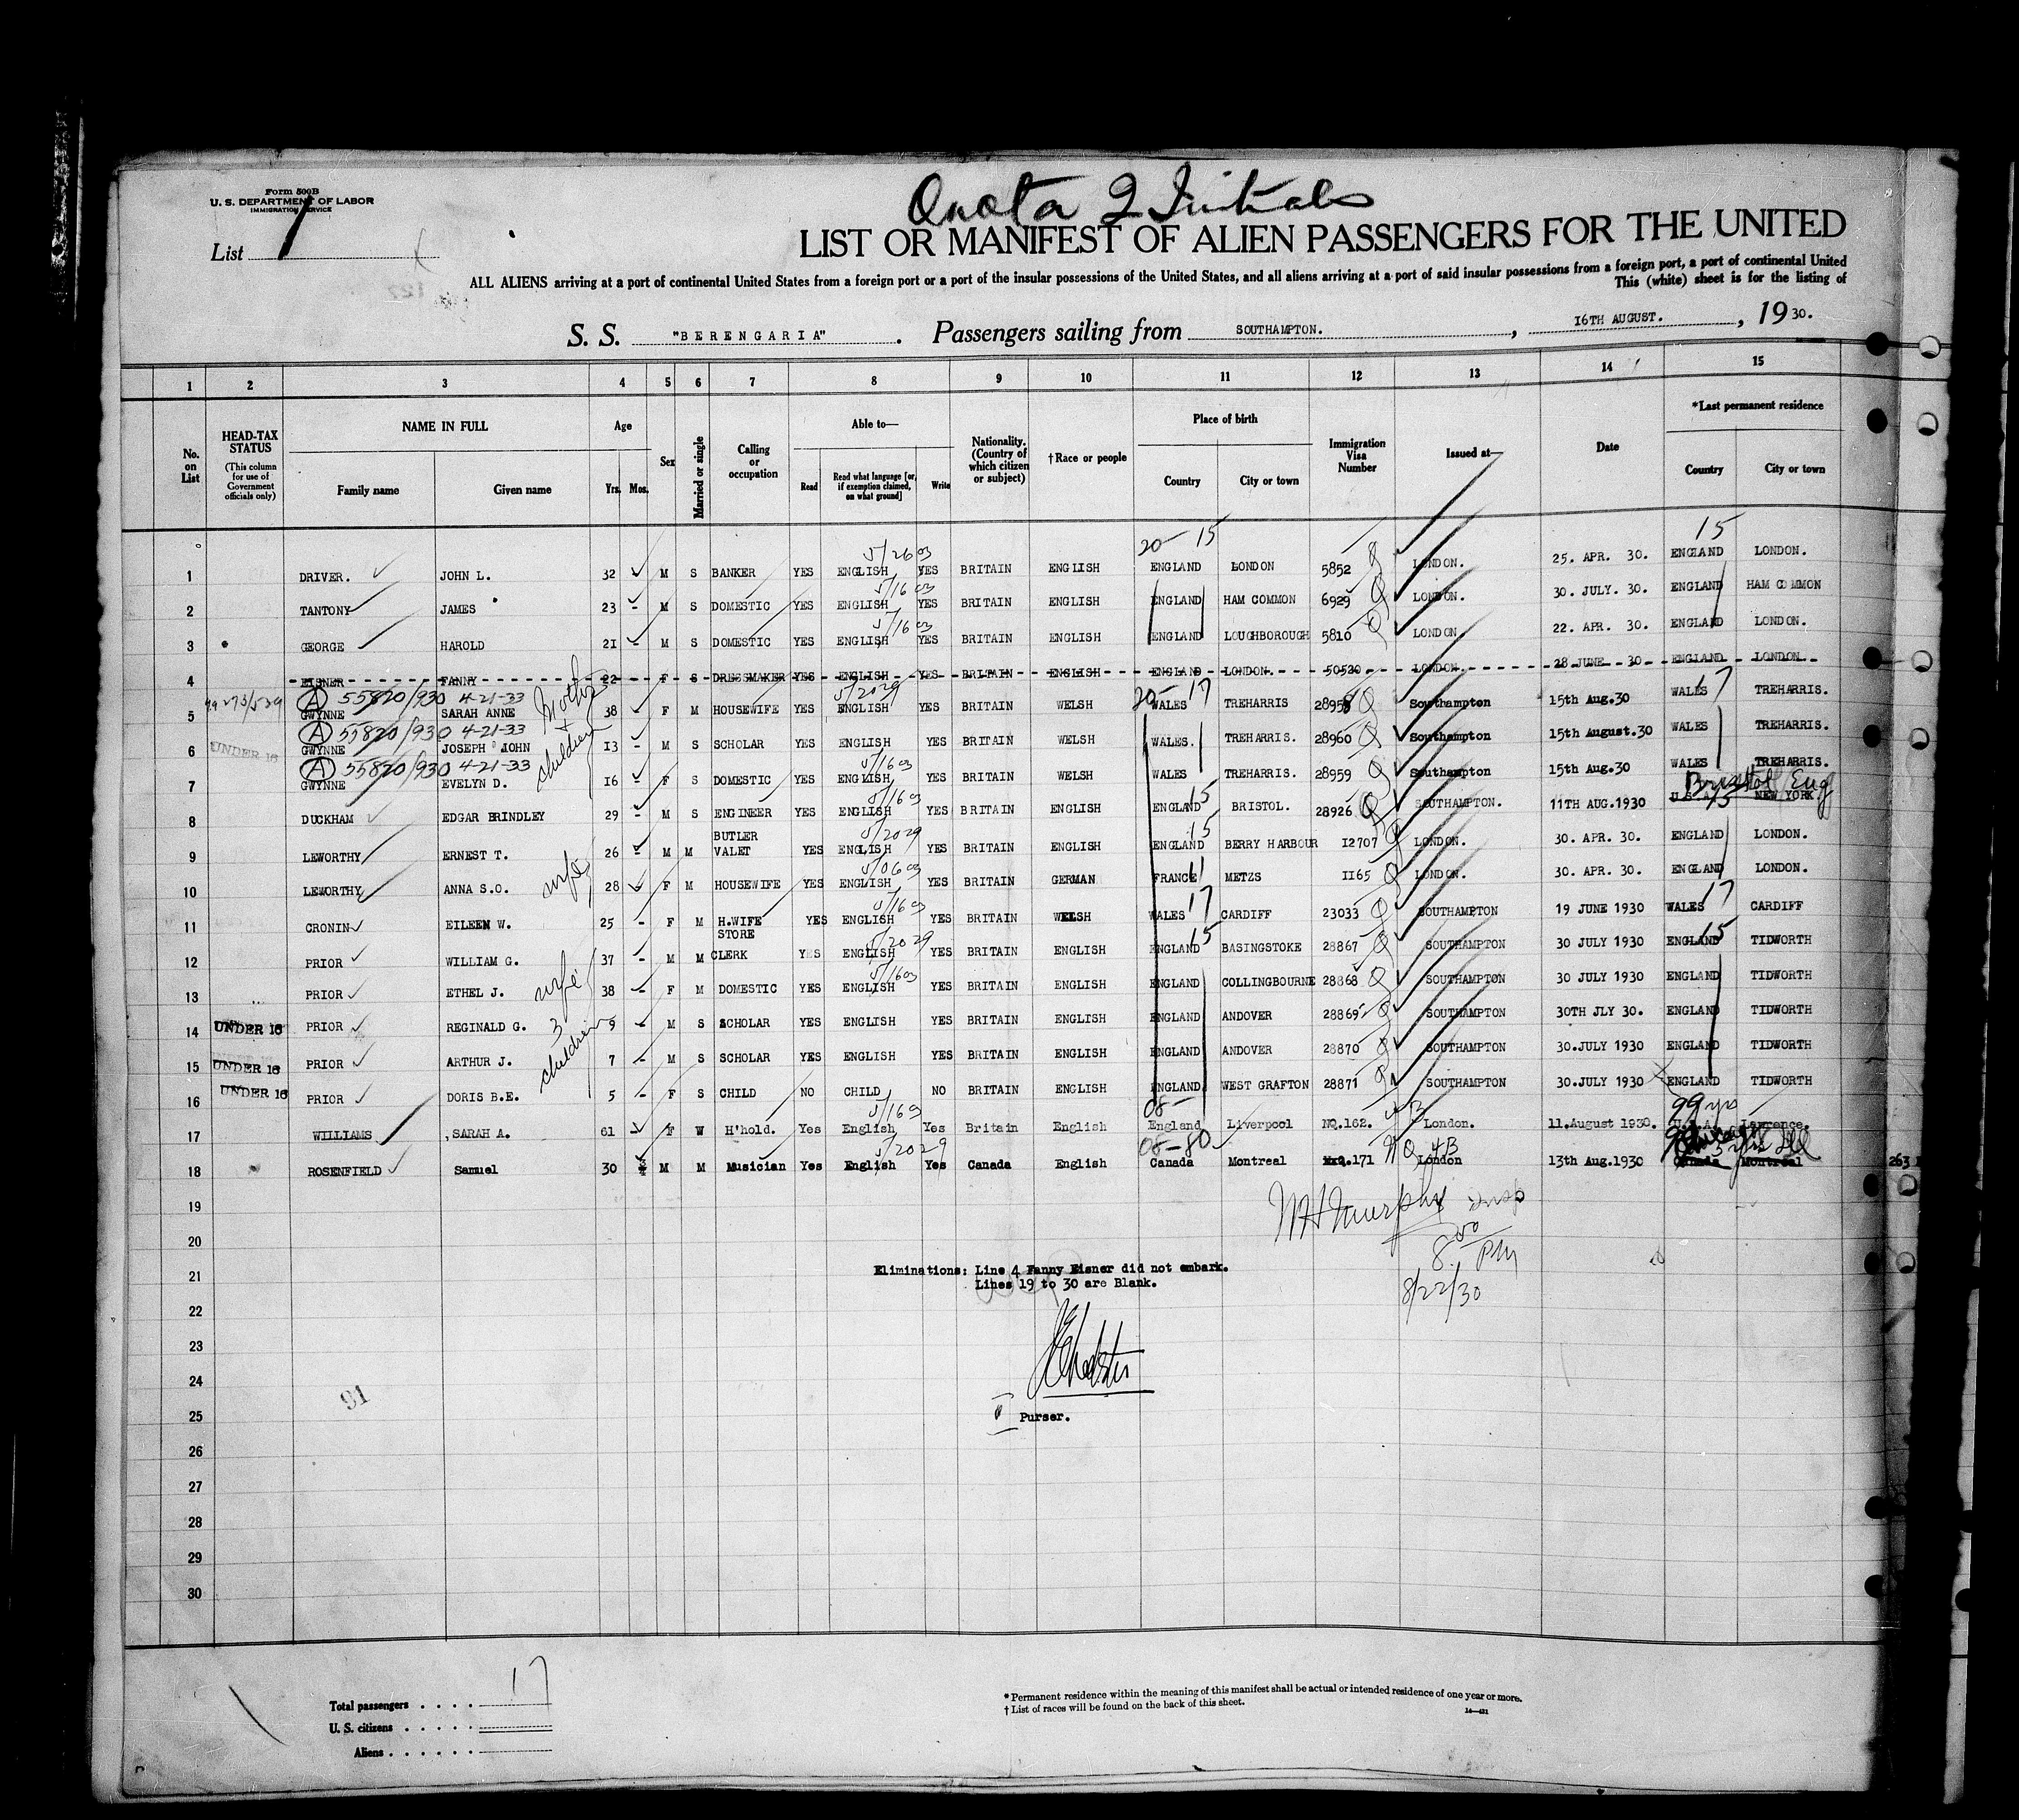 Form 500B
U. S. DEPARTMENT OF LABOR
IMMIGRATION SERVICE
List 1
Quota 2 Initials
LIST OR MANIFEST OF ALIEN PASSENGERS FOR THE UNITED
ALL ALIENS arriving at a port of continental United States from a foreign port or a port of the insular possessions of the United States, and all aliens arriving at a port of said insular possessions from a foreign port, a port of continental United
This (white) sheet is for the listing of
S. S. "BERENGARIA". Passengers sailing from SOUTHAMPTON. , 16TH AUGUST. , 1930.
1 2 3 4 5 6 7 8 9 10 11 12 13 14 15
No. on List
HEAD-TAX STATUS
(This column for use of Government officials only)
NAME IN FULL
Family name Given name
Age
Yrs. Mos.
Sex
Married or single
Calling or occupation
Able to—
Read Read what language [or, if exemption claimed, on what ground] Write
Nationality. (Country of which citizen or subject)
†Race or people
Place of birth
Country City or town
Immigration Visa Number
Issued at—
Date
*Last permanent residence
Country City or town
20- 15 15
5/26 03
1 DRIVER. JOHN L. 32 M S BANKER YES ENGLISH YES BRITAIN ENGLISH ENGLAND LONDON 5852 LONDON. 25. APR. 30. ENGLAND LONDON.
5/16 03
2 TANTONY JAMES 23 - M S DOMESTIC YES ENGLISH YES BRITAIN ENGLISH ENGLAND HAM COMMON 6929 LONDON. 30. JULY. 30. ENGLAND HAM COMMON
5/16 03
3 GEORGE HAROLD 21 - M S DOMESTIC YES ENGLISH YES BRITAIN ENGLISH ENGLAND LOUGHBOROUGH 5810 LONDON. 22. APR. 30. ENGLAND LONDON.
4 EISNER FANNY 22 F S DRESSMAKER YES ENGLISH YES BRITAIN ENGLISH ENGLAND LONDON. 50520 LONDON 28 JUNE 30 ENGLAND LONDON
A 55820/930 4-21-33 5/2029 20- 17 17
5 GWYNNE SARAH ANNE 38 - F M HOUSEWIFE YES ENGLISH YES BRITAIN WELSH WALES TREHARRIS 28958 Southampton 15th Aug.30 WALES TREHARRIS.
Mother + children
A 55820/930 4-21-33
6 UNDER 16 GWYNNE JOSEPH JOHN 13 - M S SCHOLAR YES ENGLISH YES BRITAIN WELSH WALES. TREHARRIS. 28960 Southampton 15th August.30 WALES TREHARRIS.
A 55820/930 4-21-33 5/1603
7 GWYNNE EVELYN D. 16 - F S DOMESTIC YES ENGLISH YES BRITAIN WELSH WALES TREHARRIS. 28959 Southampton 15th Aug.30 WALES TREHARRIS.
5/1603 15 Bristol Eng
8 DUCKHAM EDGAR BRINDLEY 29 - M S ENGINEER YES ENGLISH YES BRITAIN ENGLISH ENGLAND BRISTOL. 28926 SOUTHAMPTON. 11TH AUG.1930 U.S.A. NEW YORK.
5/2029 15 15
9 LEWORTHY ERNEST T. 26 - M M BUTLER VALET YES ENGLISH YES BRITAIN ENGLISH ENGLAND BERRY HARBOUR 12707 LONDON. 30. APR. 30. ENGLAND LONDON.
wife 5/0603
10 LEWORTHY ANNA S.O. 28 F M HOUSEWIFE YES ENGLISH YES BRITAIN GERMAN FRANCE METZS 1165 LONDON. 30. APR. 30. ENGLAND LONDON.
5/1603 17 17
11 CRONIN EILEEN W. 25 - F M H.WIFE YES ENGLISH YES BRITAIN WELSH WALES CARDIFF 23033 SOUTHAMPTON 19 JUNE 1930 WALES CARDIFF
5/2029 15 15
12 PRIOR WILLIAM G. 37 - M M STORE CLERK YES ENGLISH YES BRITAIN ENGLISH ENGLAND BASINGSTOKE 28867 SOUTHAMPTON 30 JULY 1930 ENGLAND TIDWORTH
wife 5/1603
13 PRIOR ETHEL J. 38 - F M DOMESTIC YES ENGLISH YES BRITAIN ENGLISH ENGLAND COLLINGBOURNE 28868 SOUTHAMPTON 30 JULY 1930 ENGLAND TIDWORTH
3 children
14 UNDER 16 PRIOR REGINALD G. 9 - M S SCHOLAR YES ENGLISH YES BRITAIN ENGLISH ENGLAND ANDOVER 28869 SOUTHAMPTON 30TH JLY 30. ENGLAND TIDWORTH
15 UNDER 16 PRIOR ARTHUR J. 7 - M S SCHOLAR YES ENGLISH YES BRITAIN ENGLISH ENGLAND ANDOVER 28870 SOUTHAMPTON 30.JULY 1930 ENGLAND TIDWORTH
16 UNDER 16 PRIOR DORIS B.E. 5 - F S CHILD NO CHILD NO BRITAIN ENGLISH ENGLAND WEST GRAFTON 28871 SOUTHAMPTON 30.JULY 1930 ENGLAND TIDWORTH
5/163 08- 99 yrs
17 WILLIAMS ,SARAH A. 61 - F W H'hold. Yes English Yes Britain English England Liverpool NQ.162. London. 11.August 1930. U.S.A. Lawrence.
5/2029 08-80 4B
18 ROSENFIELD Samuel 30 M M Musician Yes English Yes Canada English Canada Montreal NQ.171 London 13th Aug.1930 Canada Montreal 263
19
20
21
22
23
24
25
26
27
28
29
30
W H Murphy Insp
8 00 PM
8/22/30
Eliminations: Line 4 Fanny Eisner did not embark.
Lines 19 to 30 are Blank.
Purser.
91
Total passengers . . . . 17
U. S. citizens . . . . .
Aliens . . . . . .
* Permanent residence within the meaning of this manifest shall be actual or intended residence of one year or more.
† List of races will be found on the back of this sheet.
14—421